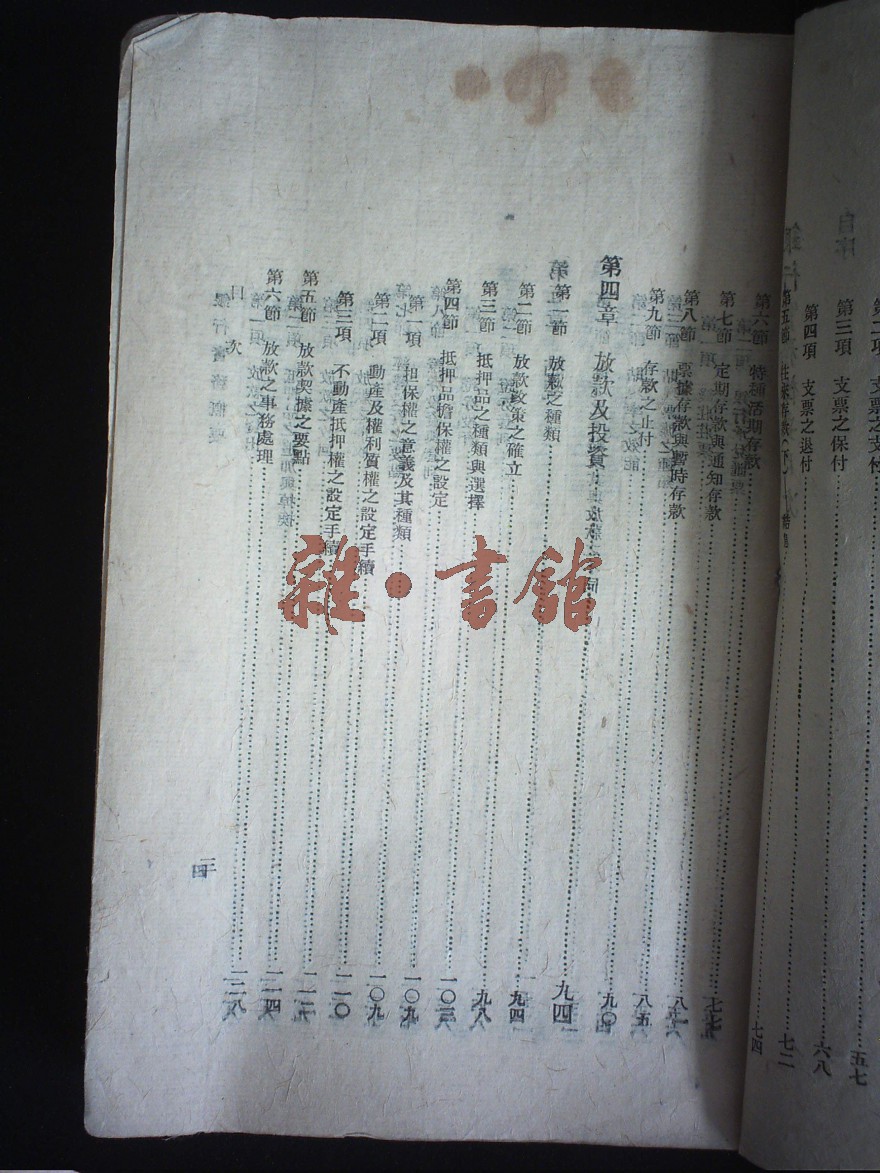 自序
第二項　支票之支付……五七
第三項　支票之保付……六八
第四項　支票之退付……七二
第五節　往來存款(下)……七四
第六節　特種活期存款……七七
第七節　定期存款與通知存款……八一
第八節　票據存款與暫時存款……八五
第九節　存款之止付……九〇
第四章　放款及投資……九四
第一節　放款之種類……九四
第二節　放款政策之確立……九八
第三節　抵押品之種類與選擇……一〇三
第四節　抵押品擔保權之設定……一〇九
第一項　担保權之意義及其種類……一〇九
第二項　動產及權利質權之設定手續……一一〇
第三項　不動產抵押權之設定手續……一一二
第五節　放款契據之要點……一一四
第六節　放款之事務處理……一一八
目次
雜·書館